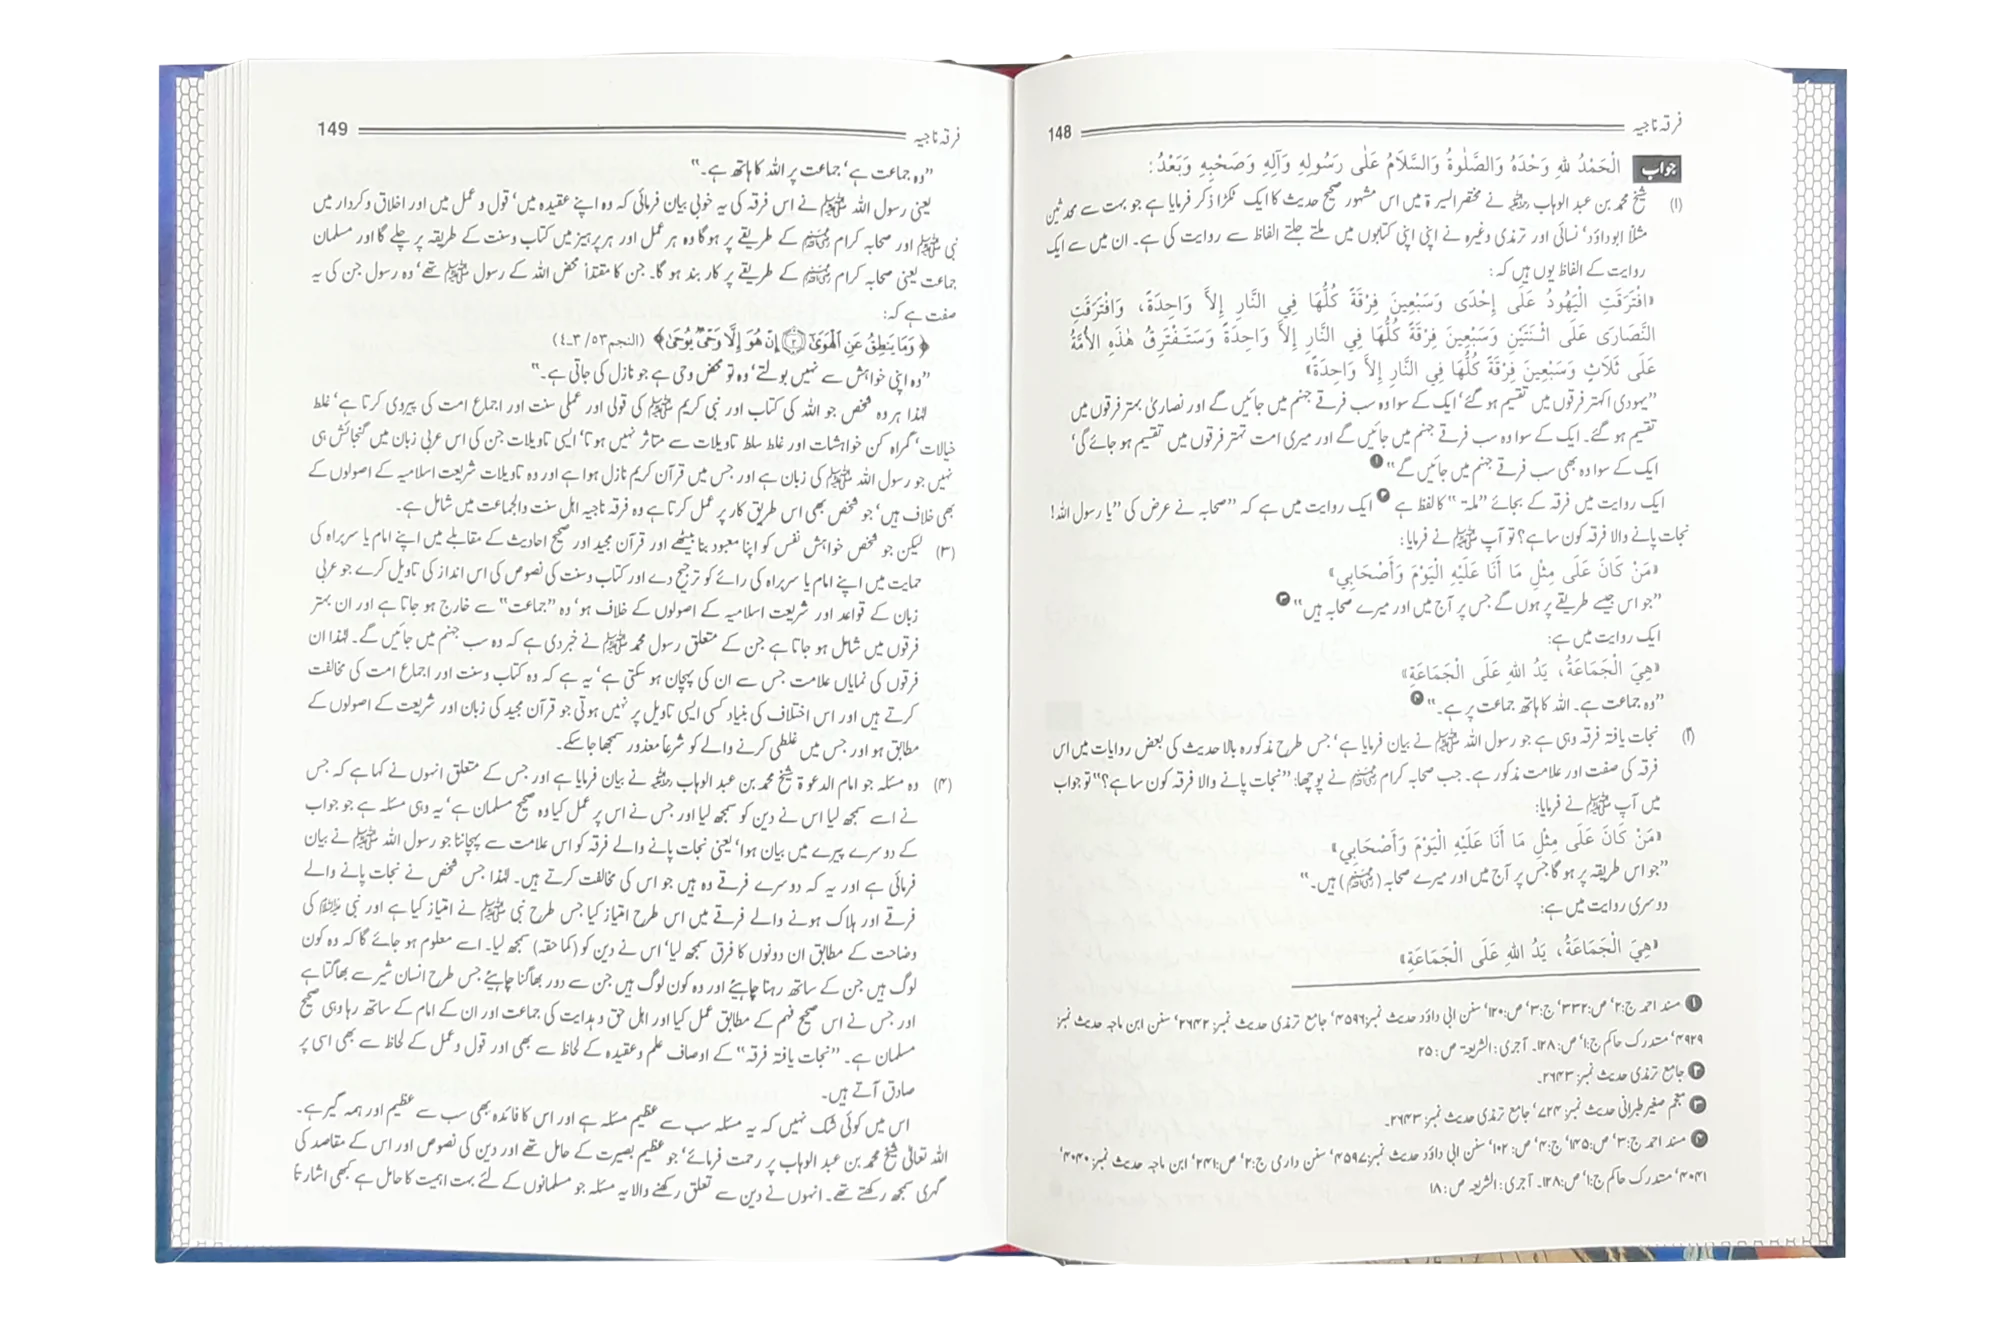 فرقہ ناجیہ 148
جواب الْحَمْدُ لِلّٰہِ وَحْدَهُ وَالصَّلٰوةُ وَالسَّلَامُ عَلٰی رَسُولِهِ وَآلِهِ وَصَحْبِهِ وَبَعْدُ:
(۱) شیخ محمد بن عبد الوہاب رحمہ اللہ نے مختصر السیرۃ میں اس مشہور صحیح حدیث کا ایک ٹکڑا ذکر فرمایا ہے جو بہت سے محدثین
مثلاً ابوداؤد‘ نسائی اور ترمذی وغیرہ نے اپنی اپنی کتابوں میں ملتے جلتے الفاظ سے روایت کی ہے۔ ان میں سے ایک
روایت کے الفاظ یوں ہیں کہ:
«افْتَرَقَتِ الْيَهُودُ عَلَى إِحْدَى وَسَبْعِينَ فِرْقَةً كُلُّهَا فِي النَّارِ إِلاَّ وَاحِدَةً، وَافْتَرَقَتِ
النَّصَارَى عَلَى اثْنَتَيْنِ وَسَبْعِينَ فِرْقَةً كُلُّهَا فِي النَّارِ إِلاَّ وَاحِدَةً وَسَتَفْتَرِقُ هٰذِهِ الأُمَّةُ
عَلَى ثَلَاثٍ وَسَبْعِينَ فِرْقَةً كُلُّهَا فِي النَّارِ إِلاَّ وَاحِدَةً»
”یہودی اکہتر فرقوں میں تقسیم ہو گئے‘ ایک کے سوا وہ سب فرقے جہنم میں جائیں گے اور نصاریٰ بہتر فرقوں میں
تقسیم ہو گئے۔ ایک کے سوا وہ سب فرقے جہنم میں جائیں گے اور میری امت تہتر فرقوں میں تقسیم ہو جائے گی‘
ایک کے سوا وہ بھی سب فرقے جہنم میں جائیں گے“ ۱
ایک روایت میں فرقہ کے بجائے ”ملۃ“ کا لفظ ہے ۲ ایک روایت میں ہے کہ ”صحابہ نے عرض کی ”یا رسول اللہ!
نجات پانے والا فرقہ کون سا ہے؟ تو آپ ﷺ نے فرمایا:
«مَنْ كَانَ عَلَى مِثْلِ مَا أَنَا عَلَيْهِ الْيَوْمَ وَأَصْحَابِي»
”جو اس جیسے طریقے پر ہوں گے جس پر آج میں اور میرے صحابہ ہیں“ ۳
ایک روایت میں ہے:
«هِيَ الْجَمَاعَةُ، يَدُ اللهِ عَلَى الْجَمَاعَةِ»
”وہ جماعت ہے۔ اللہ کا ہاتھ جماعت پر ہے۔“ ۴
(۲) نجات یافتہ فرقہ وہی ہے جو رسول اللہ ﷺ نے بیان فرمایا ہے‘ جس طرح مذکورہ بالا حدیث کی بعض روایات میں اس
فرقہ کی صفت اور علامت مذکور ہے۔ جب صحابہ کرام رضی اللہ عنہم نے پوچھا: ”نجات پانے والا فرقہ کون سا ہے؟“ تو جواب
میں آپ ﷺ نے فرمایا:
«مَنْ كَانَ عَلَى مِثْلِ مَا أَنَا عَلَيْهِ الْيَوْمَ وَأَصْحَابِي»
”جو اس طریقہ پر ہو گا جس پر آج میں اور میرے صحابہ (رضی اللہ عنہم) ہیں۔“
دوسری روایت میں ہے:
«هِيَ الْجَمَاعَةُ، يَدُ اللهِ عَلَى الْجَمَاعَةِ»
۱ مسند احمد ج:۲‘ ص:۳۳۲‘ ج:۳‘ ص:۱۲۰‘ سنن ابی داؤد حدیث نمبر:۴۵۹۶‘ جامع ترمذی حدیث نمبر: ۲۶۴۲‘ سنن ابن ماجہ حدیث نمبر:
۳۹۲۹‘ مستدرک حاکم ج:۱‘ ص:۱۲۸۔ آجری: الشریعۃ ص: ۲۵
۲ جامع ترمذی حدیث نمبر: ۲۶۴۳۔
۳ معجم صغیر طبرانی حدیث نمبر: ۷۲۴‘ جامع ترمذی حدیث نمبر: ۲۶۴۳۔
۴ مسند احمد ج:۳‘ ص:۱۴۵‘ ج:۴‘ ص:۱۰۲‘ سنن ابی داؤد حدیث نمبر:۴۵۹۷‘ سنن دارمی ج:۲‘ ص:۲۴۱‘ ابن ماجہ حدیث نمبر: ۴۰۴۰‘
۴۰۴۱‘ مستدرک حاکم ج:۱‘ ص:۱۲۸۔ آجری: الشریعہ ص: ۱۸
فرقہ ناجیہ 149
”وہ جماعت ہے‘ جماعت پر اللہ کا ہاتھ ہے۔“
یعنی رسول اللہ ﷺ نے اس فرقہ کی یہ خوبی بیان فرمائی کہ وہ اپنے عقیدہ میں‘ قول و عمل میں اور اخلاق و کردار میں
نبی ﷺ اور صحابہ کرام رضی اللہ عنہم کے طریقے پر ہو گا وہ ہر عمل اور ہر پرہیز میں کتاب و سنت کے طریقہ پر چلے گا اور مسلمان
جماعت یعنی صحابہ کرام رضی اللہ عنہم کے طریقے پر کار بند ہو گا۔ جن کا مقتدا محض اللہ کے رسول ﷺ تھے‘ وہ رسول جن کی یہ
صفت ہے کہ:
﴿وَمَا يَنطِقُ عَنِ الْهَوَىٰ ۝٣ إِنْ هُوَ إِلَّا وَحْيٌ يُوحَىٰ﴾ (النجم ۵۳/ ۳۔۴)
”وہ اپنی خواہش سے نہیں بولتے‘ وہ تو محض وحی ہے جو نازل کی جاتی ہے۔“
لہٰذا ہر وہ شخص جو اللہ کی کتاب اور نبی کریم ﷺ کی قولی اور عملی سنت اور اجماع امت کی پیروی کرتا ہے‘ غلط
خیالات‘ گمراہ کن خواہشات اور غلط سلط تاویلات سے متاثر نہیں ہوتا‘ ایسی تاویلات جن کی اس عربی زبان میں گنجائش ہی
نہیں جو رسول اللہ ﷺ کی زبان ہے اور جس میں قرآن کریم نازل ہوا ہے اور وہ تاویلات شریعت اسلامیہ کے اصولوں کے
بھی خلاف ہیں‘ جو شخص بھی اس طریق کار پر عمل کرتا ہے وہ فرقہ ناجیہ اہل سنت والجماعت میں شامل ہے۔
(۳) لیکن جو شخص خواہش نفس کو اپنا معبود بنا بیٹھے اور قرآن مجید اور صحیح احادیث کے مقابلے میں اپنے امام یا سربراہ کی
حمایت میں اپنے امام یا سربراہ کی رائے کو ترجیح دے اور کتاب و سنت کی نصوص کی اس انداز کی تاویل کرے جو عربی
زبان کے قواعد اور شریعت اسلامیہ کے اصولوں کے خلاف ہو‘ وہ ”جماعت“ سے خارج ہو جاتا ہے اور ان بہتر
فرقوں میں شامل ہو جاتا ہے جن کے متعلق رسول محمد ﷺ نے خبر دی ہے کہ وہ سب جہنم میں جائیں گے۔ لہٰذا ان
فرقوں کی نمایاں علامت جس سے ان کی پہچان ہو سکتی ہے‘ یہ ہے کہ وہ کتاب و سنت اور اجماع امت کی مخالفت
کرتے ہیں اور اس اختلاف کی بنیاد کسی ایسی تاویل پر نہیں ہوتی جو قرآن مجید کی زبان اور شریعت کے اصولوں کے
مطابق ہو اور جس میں غلطی کرنے والے کو شرعاً معذور سمجھا جا سکے۔
(۴) وہ مسئلہ جو امام الدعوۃ شیخ محمد بن عبد الوہاب رحمہ اللہ نے بیان فرمایا ہے اور جس کے متعلق انہوں نے کہا ہے کہ جس
نے اسے سمجھ لیا اس نے دین کو سمجھ لیا اور جس نے اس پر عمل کیا وہ صحیح مسلمان ہے‘ یہ وہی مسئلہ ہے جو جواب
کے دوسرے پیرے میں بیان ہوا‘ یعنی نجات پانے والے فرقہ کو اس علامت سے پہچاننا جو رسول اللہ ﷺ نے بیان
فرمائی ہے اور یہ کہ دوسرے فرقے وہ ہیں جو اس کی مخالفت کرتے ہیں۔ لہٰذا جس شخص نے نجات پانے والے
فرقے اور ہلاک ہونے والے فرقے میں اس طرح امتیاز کیا جس طرح نبی ﷺ نے امتیاز کیا ہے اور نبی ﷺ کی
وضاحت کے مطابق ان دونوں کا فرق سمجھ لیا‘ اس نے دین کو (کما حقہ) سمجھ لیا۔ اسے معلوم ہو جائے گا کہ وہ کون
لوگ ہیں جن کے ساتھ رہنا چاہئے اور وہ کون لوگ ہیں جن سے دور بھاگنا چاہئے جس طرح انسان شیر سے بھاگتا ہے
اور جس نے اس صحیح فہم کے مطابق عمل کیا اور اہل حق و ہدایت کی جماعت اور ان کے امام کے ساتھ رہا وہی صحیح
مسلمان ہے۔ ”نجات یافتہ فرقہ“ کے اوصاف علم و عقیدہ کے لحاظ سے بھی اور قول و عمل کے لحاظ سے بھی اسی پر
صادق آتے ہیں۔
اس میں کوئی شک نہیں کہ یہ مسئلہ سب سے عظیم مسئلہ ہے اور اس کا فائدہ بھی سب سے عظیم اور ہمہ گیر ہے۔
اللہ تعالیٰ شیخ محمد بن عبد الوہاب پر رحمت فرمائے‘ جو عظیم بصیرت کے حامل تھے اور دین کی نصوص اور اس کے مقاصد کی
گہری سمجھ رکھتے تھے۔ انہوں نے دین سے تعلق رکھنے والا یہ مسئلہ جو مسلمانوں کے لئے بہت اہمیت کا حامل ہے کبھی اشارتا